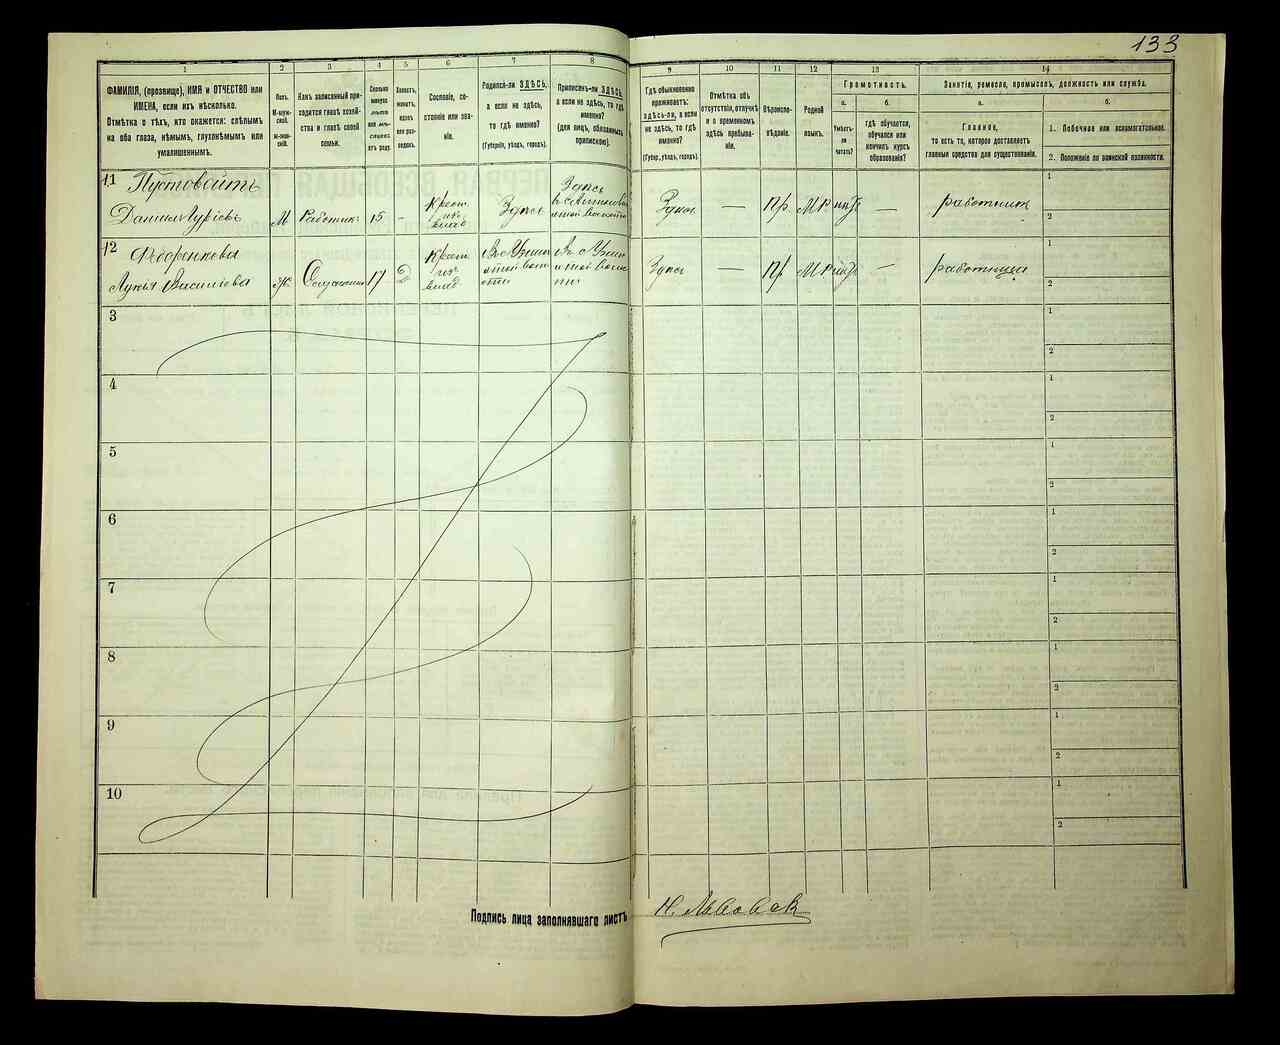 133
1
ФАМИЛІЯ, (прозвище), ИМЯ и ОТЧЕСТВО или
ИМЕНА, если ихъ нѣсколько.
Отмѣтка о тѣхъ, кто окажется: слѣпымъ
на оба глаза, нѣмымъ, глухонѣмымъ или
умалишеннымъ.
2
Полъ.
М-муж-
ской.
Ж-жен-
скій.
3
Какъ записанный при-
ходится главѣ хозяй-
ства и главѣ своей
семьи.
4
Сколько
минуло
лѣтъ
или мѣ-
сяцевъ
отъ роду.
5
Холостъ,
женатъ,
вдовъ
или раз-
веденъ.
6
Сословіе, со-
стояніе или зва-
ніе.
7
Родился-ли ЗДѢСЬ,
а если не здѣсь,
то гдѣ именно?
(Губернія, уѣздъ, городъ).
8
Приписанъ-ли ЗДѢСЬ,
а если не здѣсь, то гдѣ
именно?
(для лицъ, обязанныхъ
припискою).
9
Гдѣ обыкновенно
проживаетъ:
здѣсь-ли, а если
не здѣсь, то гдѣ
именно?
(Губер., уѣздъ, городъ).
10
Отмѣтка объ
отсутствіи, отлучкѣ
и о временномъ
здѣсь пребыва-
ніи.
11
Вѣроиспо-
вѣданіе.
12
Родной
языкъ.
13
Грамотность.
а.
Умѣетъ-
ли
читать?
б.
гдѣ обучается,
обучался или
кончилъ курсъ
образованія?
14
Занятіе, ремесло, промыселъ, должность или служба.
а.
Главное,
то есть то, которое доставляетъ
главныя средства для существованія.
б.
1. Побочное или вспомогательное.
2. Положеніе по воинской повинности.
11 Пустовойтъ
Даниилъ Гурьевъ
М
Работник
15
-
Крест.
Здесь
Здесь
Здесь
—
Пр.
М
—
работникъ
1
2
12 Федоренкова
Лукья Васильева
Ж
17
Крест.
Здесь
—
Пр
М
—
работница
1
2
3
1
2
4
1
2
5
1
2
6
1
2
7
1
2
8
1
2
9
1
2
10
1
2
Подпись лица заполнявшаго листъ